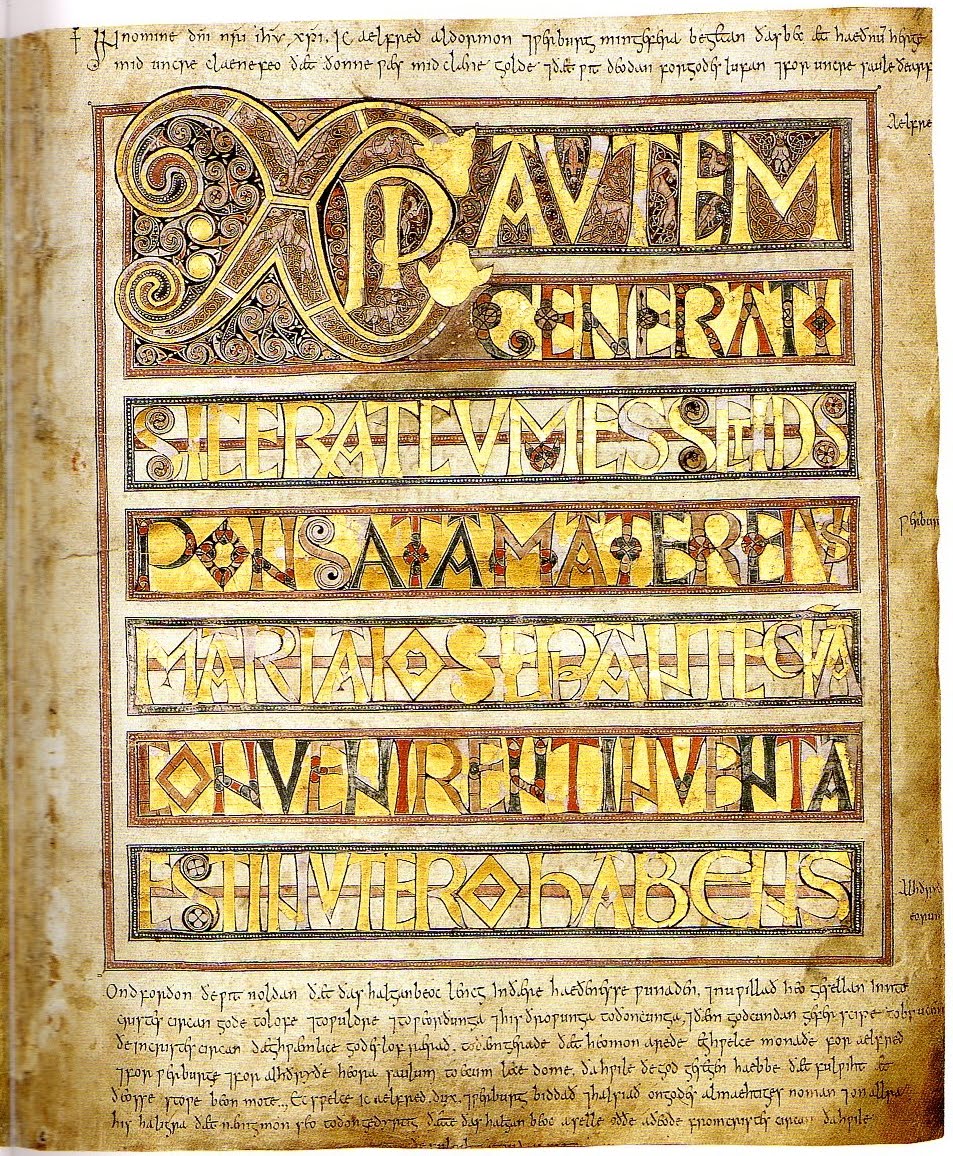 + In nomine dni nri ihu xpi. Ic aelfred aldormon ⁊ ƿerburg min gefera begetan ðas bec æt haeðnū herge
mid uncre claene feo ðæt ðonne ƿæs mid clæne golde ⁊ðæt ƿit deodan for godes lufan ⁊for uncre saule ðearfe
XP AVTEM
Aelfre
GENERATI
SIC ERAT CVM ESSET DIS
PONSATA MATER EIVS
ƿerbur
MARIA IOSEP ANTEQVĀ
CONVENIRENT INVENTA
EST IN VTERO HABENS
Alhðryð
eorum
Ond forðon ðe ƿit noldan ðæt ðas halgan beoc lencg inðære haeðenesse ƿunaden, ⁊nu ƿillað heo gesellan inn to
cristes circan gode tolofe ⁊toƿuldre ⁊toƿeorðunga ⁊his ðroƿunga toðoncunga, ⁊ðæm godcundan geferscipe tobrucen
ðe in cristes circan dæghƿæmlice godes lof rærað, toðæm gerade ðæt heo mon arede eghƿelce monaðe for aelfred
⁊for ƿerburge ⁊for alhðryðe heora saulum toecum lecedome, ða hƿile ðe god gesegen haebbe ðæt fulƿiht æt
ðeosse stoƿe beon mote. Ec sƿelce ic aelfred. dux. ⁊ƿerburg biddað ⁊halsiað on godes almaehtiges noman ⁊on allra
his haligra ðæt nænig mon seo toðon gedyrstig ðætte ðas halgan beoc aselle oððe aðeode from cristes circan ðahƿile